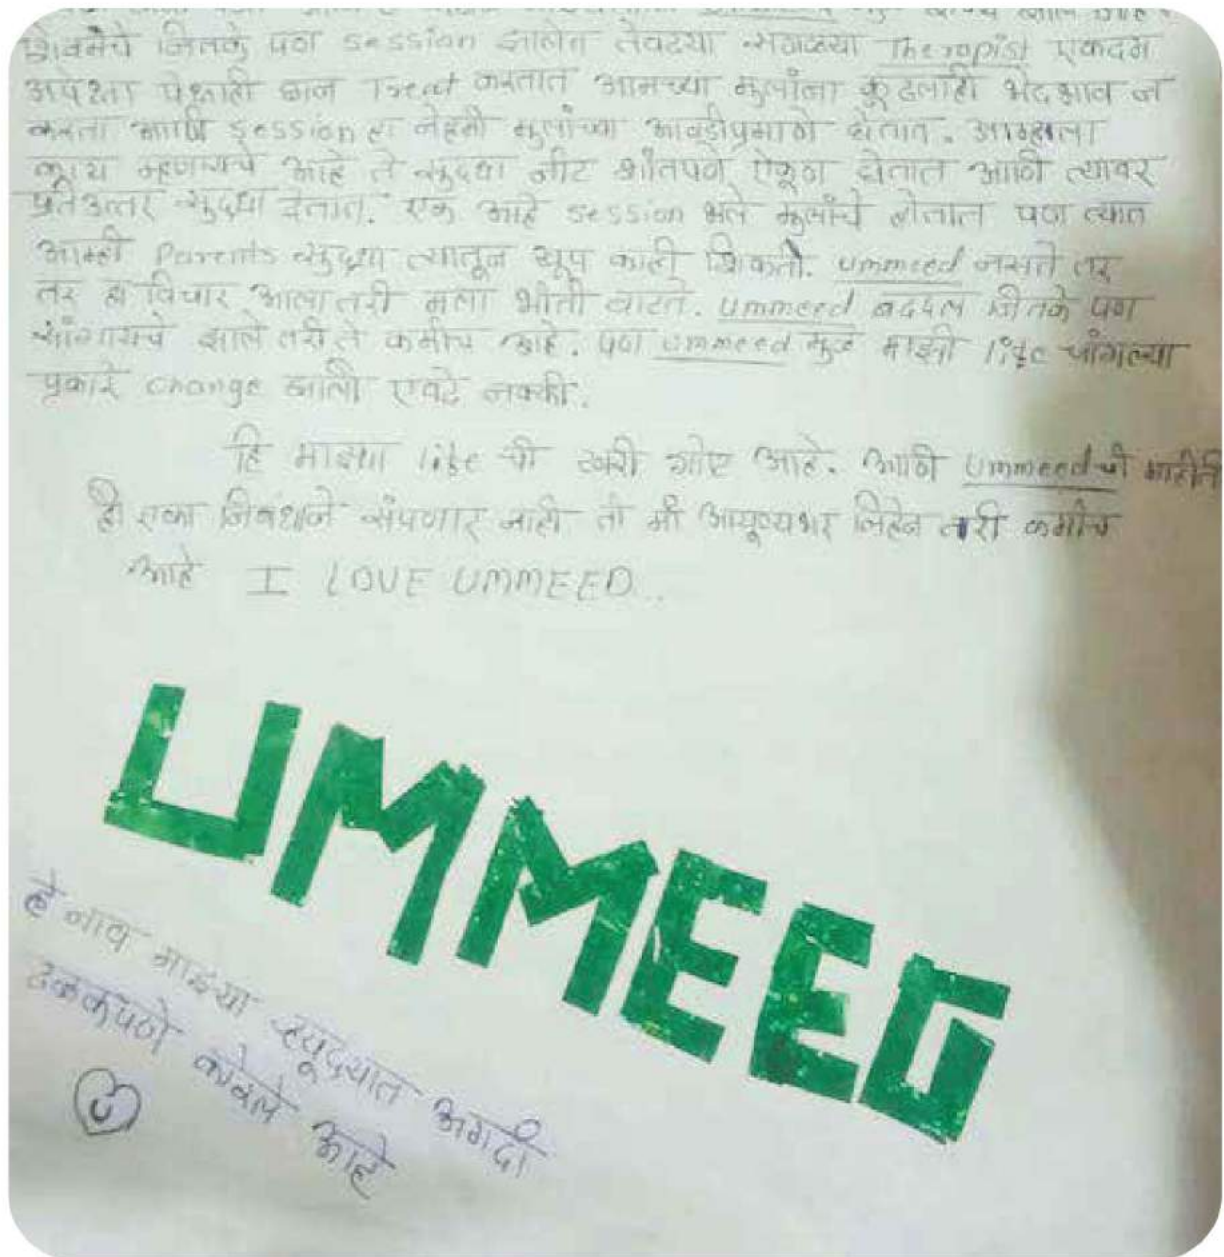 शिवमचे जितके पण session झालेत तेवढ्या सगळ्या Therapist एकदम
अपेक्षा पेक्षाही छान Treat करतात आमच्या मुलांना कुठलाही भेदभाव न
करता आणि session हा नेहमी मुलांच्या आवडीप्रमाणे घेतात. आम्हाला
काय म्हणायचे आहे ते सुद्धा नीट शांतपणे ऐकून घेतात आणि त्यावर
प्रतिउत्तर सुद्धा देतात. एक आहे session भले मुलांचे होतात पण त्यात
आम्ही Parents सुद्धा त्यातून खूप काही शिकतो. ummeed नसते तर
तर हा विचार आला तरी मला भीती वाटते. ummeed बद्दल जितके पण
सांगायचे झाले तरी ते कमीच आहे. पण ummeed मुळे माझी life चांगल्या
प्रकारे change झाली एवढे नक्की.
हि माझ्या life ची खरी गोष्ट आहे. आणी ummeed ची माहीती
ही एका निबंधाने संपणार नाही तो मी आयुष्यभर लिहेन तरी कमीच
आहे I LOVE UMMEED..
UMMEED
हे नाव माझ्या ह्यूदयात अगदी
ठळकपणे कोरले आहे
U